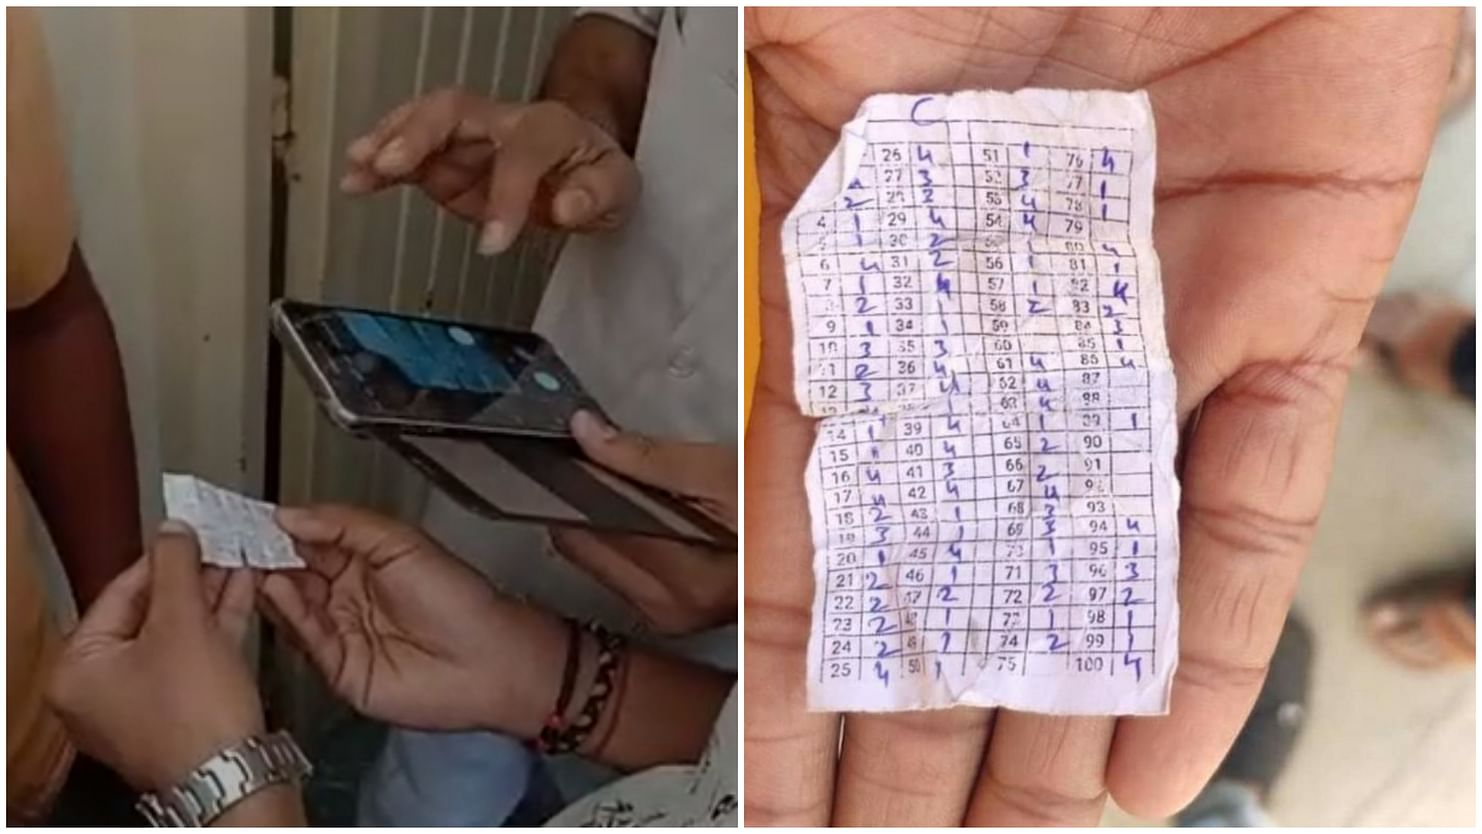 C
26 4 51 1 76 4
27 3 52 3 77 1
2 28 2 53 4 78 1
4 1 29 4 54 4 79
5 1 30 2 80 4
6 4 31 2 56 1 81 1
7 1 32 4 57 1 82 4
8 2 33 1 58 2 83 2
9 1 34 1 59 84 3
10 3 35 3 60 85 1
11 2 36 4 61 4 86 4
12 3 37 4 62 4 87
13 1 63 4 88
14 1 39 4 64 1 89 1
15 40 4 65 2 90
16 4 41 3 66 2 91
17 4 42 4 67 4
18 2 43 1 68 3 93
19 3 44 1 69 3 94 4
20 1 45 4 70 1 95 1
21 2 46 1 71 3 96 3
22 2 47 2 72 2 97 2
23 2 1 73 1 98 1
24 2 74 2 99 1
25 4 50 1 75 100 4